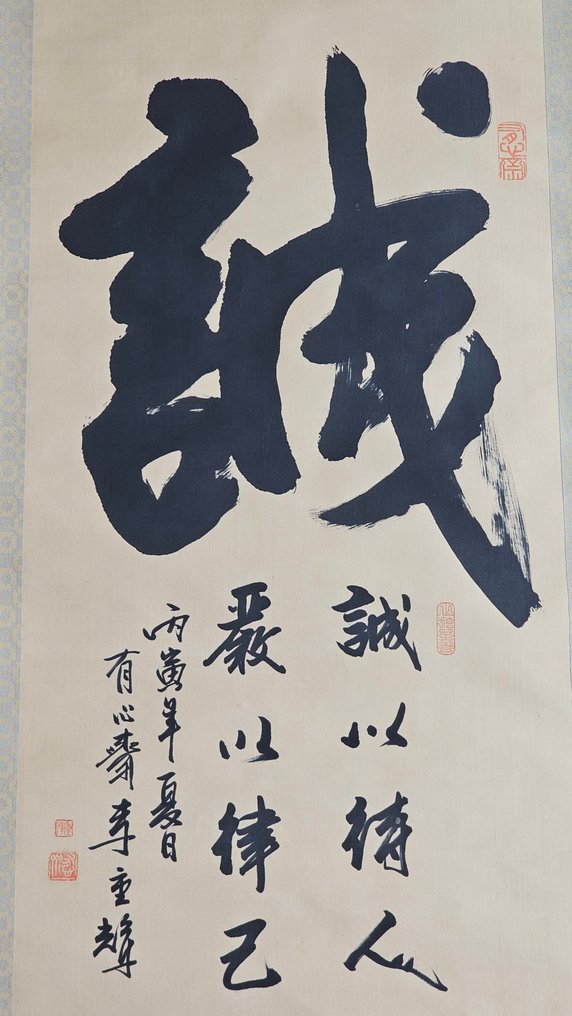 誠
誠以待人
嚴以律己
丙寅年夏日
有心齋李重輝